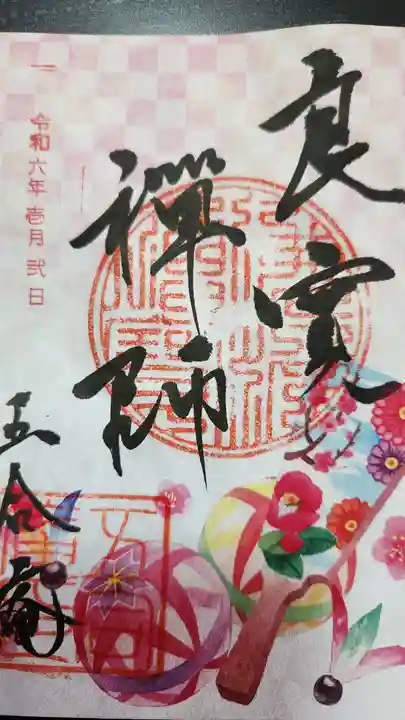 良寛
禅師
令和六年壱月弐日
五合庵